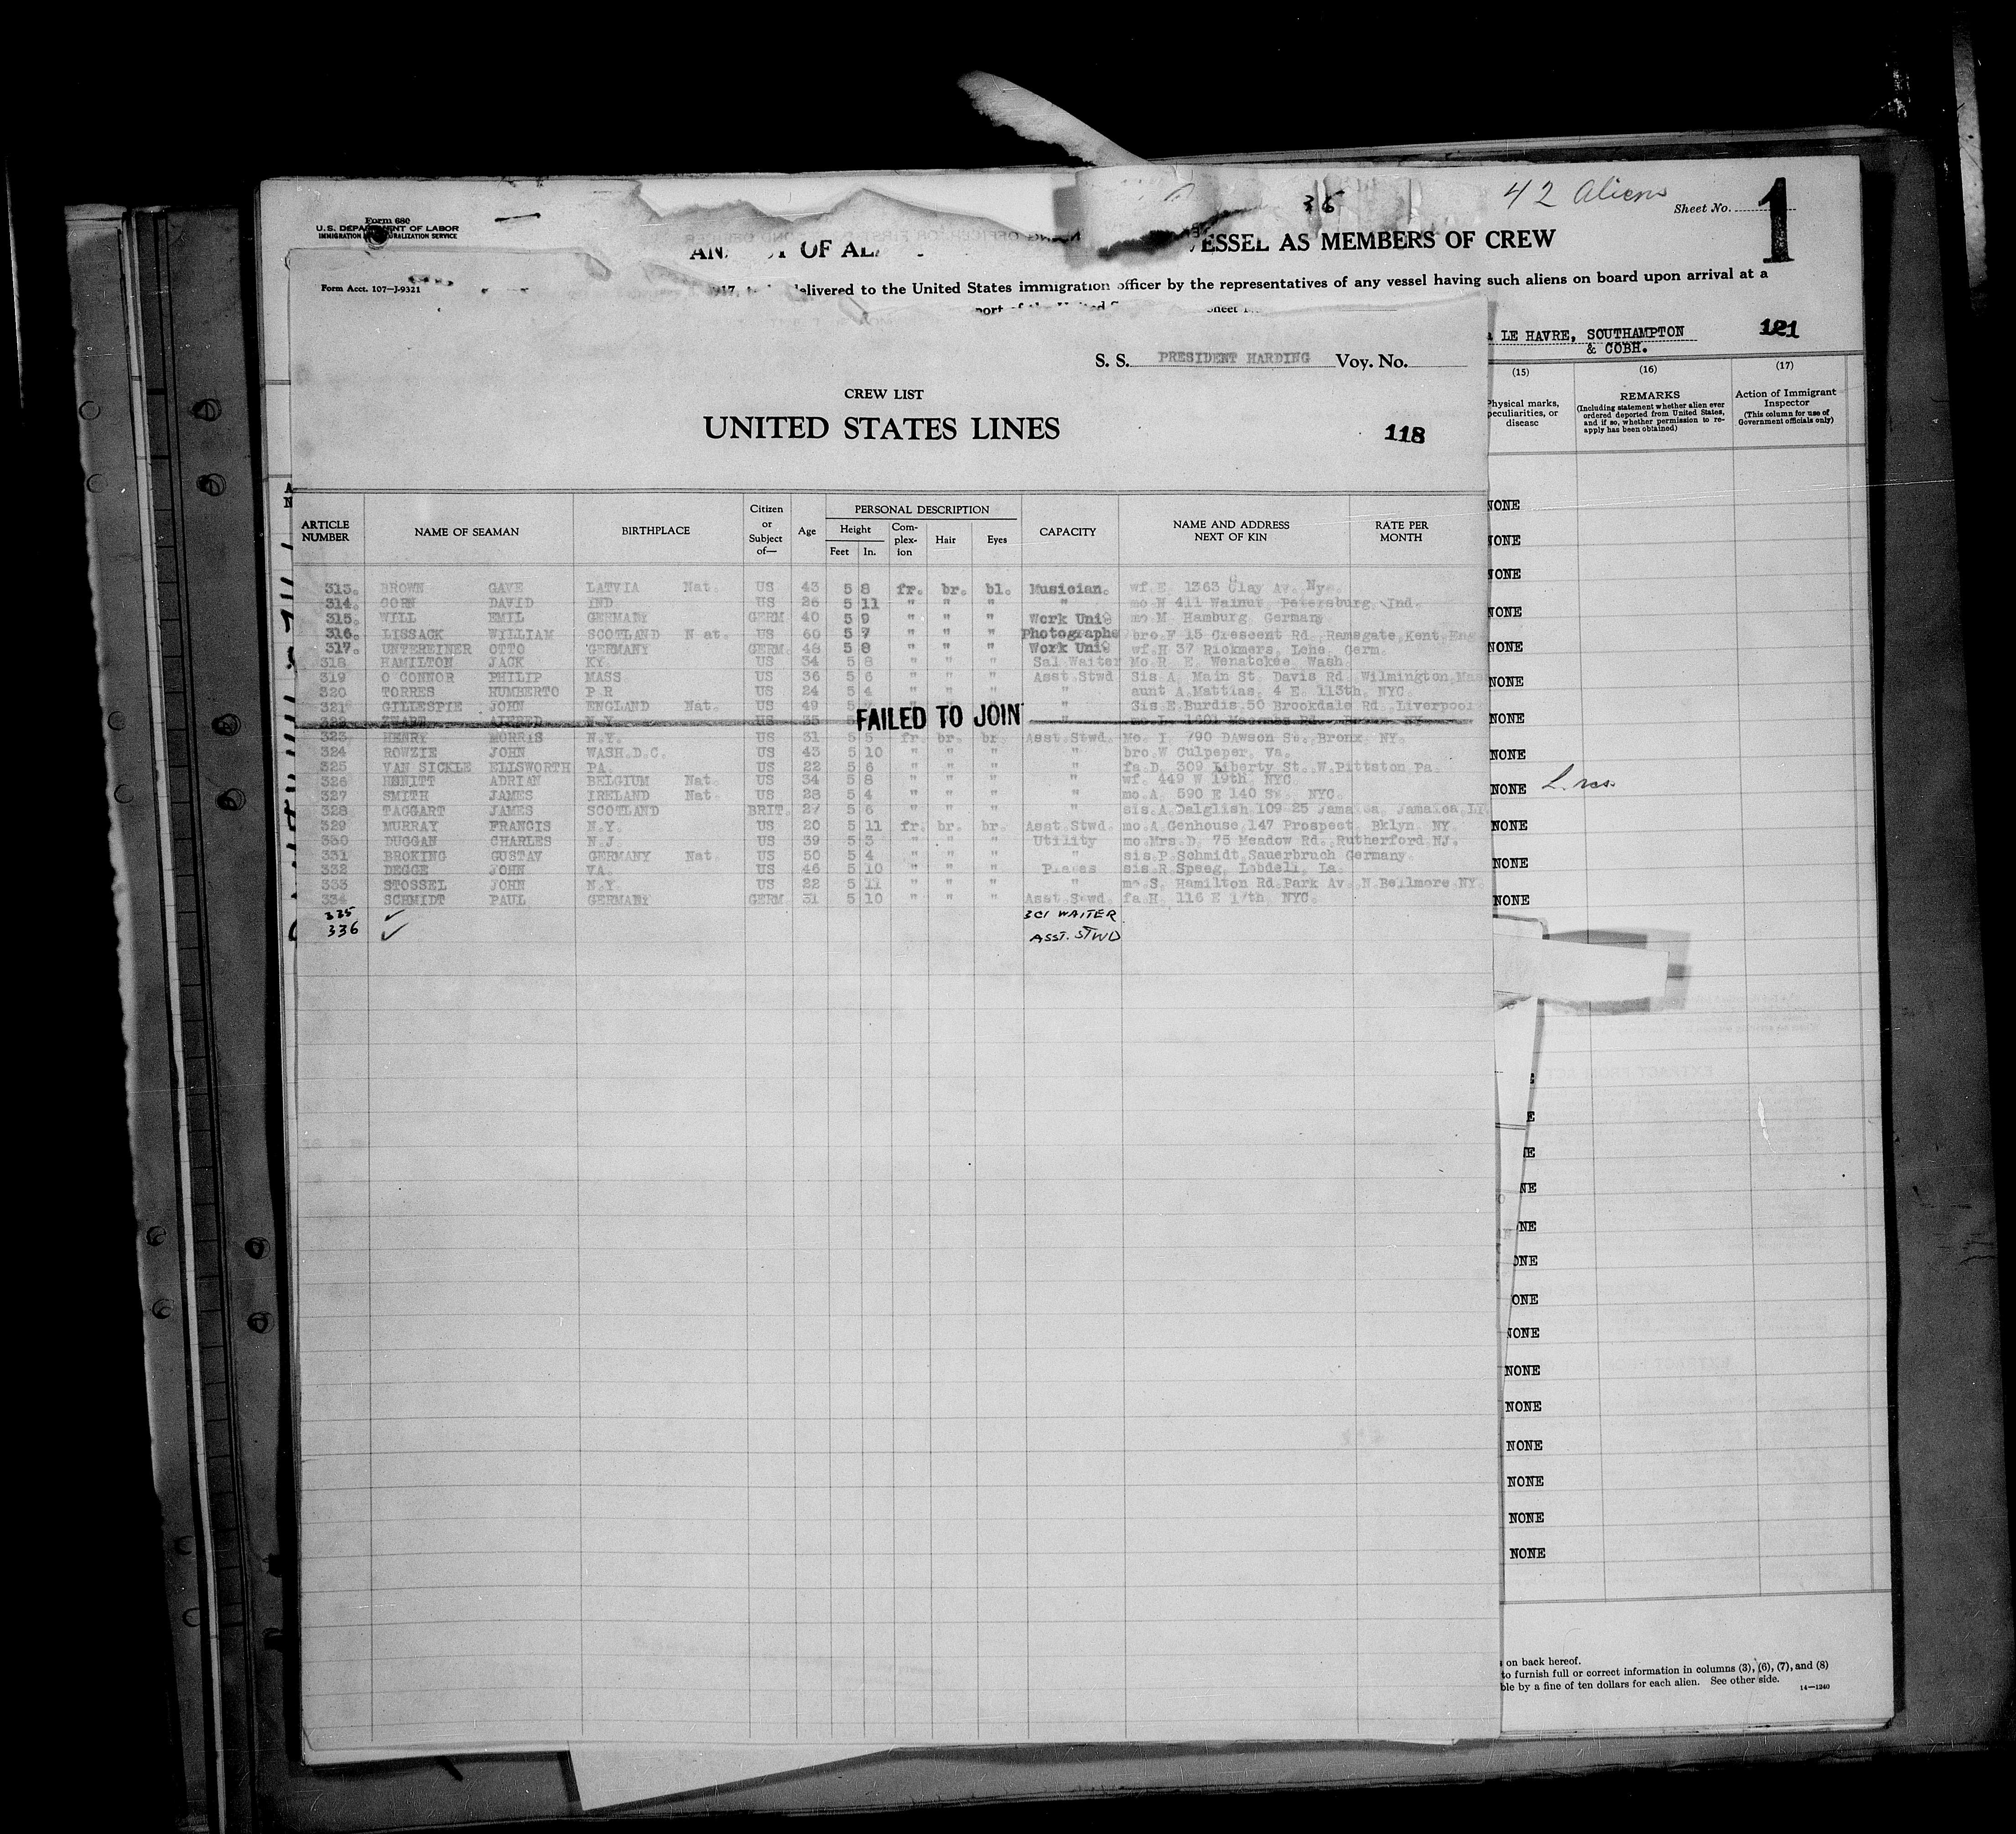 42 Aliens
Sheet No. 1
36
Form 680
U.S. DEPARTMENT OF LABOR
IMMIGRATION NATURALIZATION SERVICE
OF VESSEL AS MEMBERS OF CREW
Form Acct. 107—J-9321
1917, delivered to the United States immigration officer by the representatives of any vessel having such aliens on board upon arrival at a
LE HAVRE, SOUTHAMPTON
& COBH.
121
S. S. PRESIDENT HARDING Voy. No.
CREW LIST
UNITED STATES LINES
118
(15) (16) (17)
Physical marks, peculiarities, or disease
REMARKS
(Including statement whether alien ever ordered deported from United States, and if so, whether permission to reapply has been obtained)
Action of Immigrant Inspector
(This column for use of Government officials only)
ARTICLE NUMBER NAME OF SEAMAN BIRTHPLACE Citizen or Subject of— Age PERSONAL DESCRIPTION Height Feet In. Complexion Hair Eyes CAPACITY NAME AND ADDRESS NEXT OF KIN RATE PER MONTH
313. BROWN GAVE LATVIA Nat. US 43 5 8 fr. br. bl. Musician. wf. E. 1363 Clay Av. Ny.
314. CORN DAVID IND. US 26 5 11 " " " " mo H 411 Walnut Petersburg, Ind.
315. WILL EMIL GERMANY GERM 40 5 9 " " " Work Uni9 mo M Hamburg Germany
316. LISSACK WILLIAM SCOTLAND N at. US 60 5 7 " " " Photographe bro. F 15 Crescent Rd. Ramsgate, Kent, Eng
317. UNTEREINER OTTO GERMANY GERM. 48 5 8 " " " Work Uni9 wf. H 37 Rickmers, Lehe, Germ.
318 HAMILTON JACK KY. US 34 5 8 " " " Sal Waiter Mo R. E. Wenatokee Wash.
319 O CONNOR PHILIP MASS. US 36 5 6 " " " Asst Stwd Sis A. Main St. Davis Rd. Wilmington Mas
320 TORRES HUMBERTO P R US 24 5 4 " " " " aunt A. Mattias, 4 E. 113th, NYC.
321 GILLESPIE JOHN ENGLAND Nat. US 49 5 " Sis E. Burdis 50 Brookdale Rd. Liverpool
322 N.Y. US 35 FAILED TO JOIN "
323 HENRY MORRIS N.Y. US 31 5 5 fr. br. br. Asst.Stwd. Mo. I. 790 DAwson St. Bronx NY.
324 ROWZIE JOHN WASH.D.C. US 43 5 10 " " " " bro. W Culpeper, Va.
325 VAN SICKLE ELLSWORTH PA. US 22 5 6 " " " " fa D. 309 Liberty St. W.Pittston Pa.
326 ADRIAN BELGIUM Nat. US 34 5 8 " " " " wf. 449 W 19th NYC
327 SMITH JAMES IRELAND Nat. US 28 5 4 " " " " mo A. 590 E 140 St. NYC.
328 TAGGART JAMES SCOTLAND BRIT. 27 5 6 " " " " sis. A. Dalglish 109 25 Jamaica, Jamaica LI
329 MURRAY FRANCIS N.Y. US 20 5 11 fr. br. br. Asst Stwd. mo. A Genhouse 147 Prospect, Bklyn NY.
330 DUGGAN CHARLES N.J US 39 5 3 " " " Utility mo Mrs. D. 75 Meadow Rd. Rutherford NJ.
331 BROKING GUSTAV GERMANY Nat. US 50 5 4 " " " " sis P. Schmidt Sauerbruch Germany.
332 DEGGE JOHN VA. US 46 5 10 " " " Plates sis. R Speeg, Lobdell, La.
333 STOSSEL JOHN N.Y. US 22 5 11 " " " " mo S. Hamilton Rd Park Av. N. Bellmore NY
334 SCHMIDT PAUL GERMANY GERM 31 5 10 " " " Asst Stwd. fa H. 116 E 17th NYC.
335 ✓ 3Cl WAITER
336 ✓ ASST. STWD
NONE
NONE
NONE
NONE
NONE
NONE
NONE
NONE
NONE
NONE
NONE
NONE
NE
NE
ONE
ONE
NONE
NONE
NONE
NONE
NONE
NONE
NONE
on back hereof.
to furnish full or correct information in columns (3), (6), (7), and (8)
ble by a fine of ten dollars for each alien. See other side.
14—1240